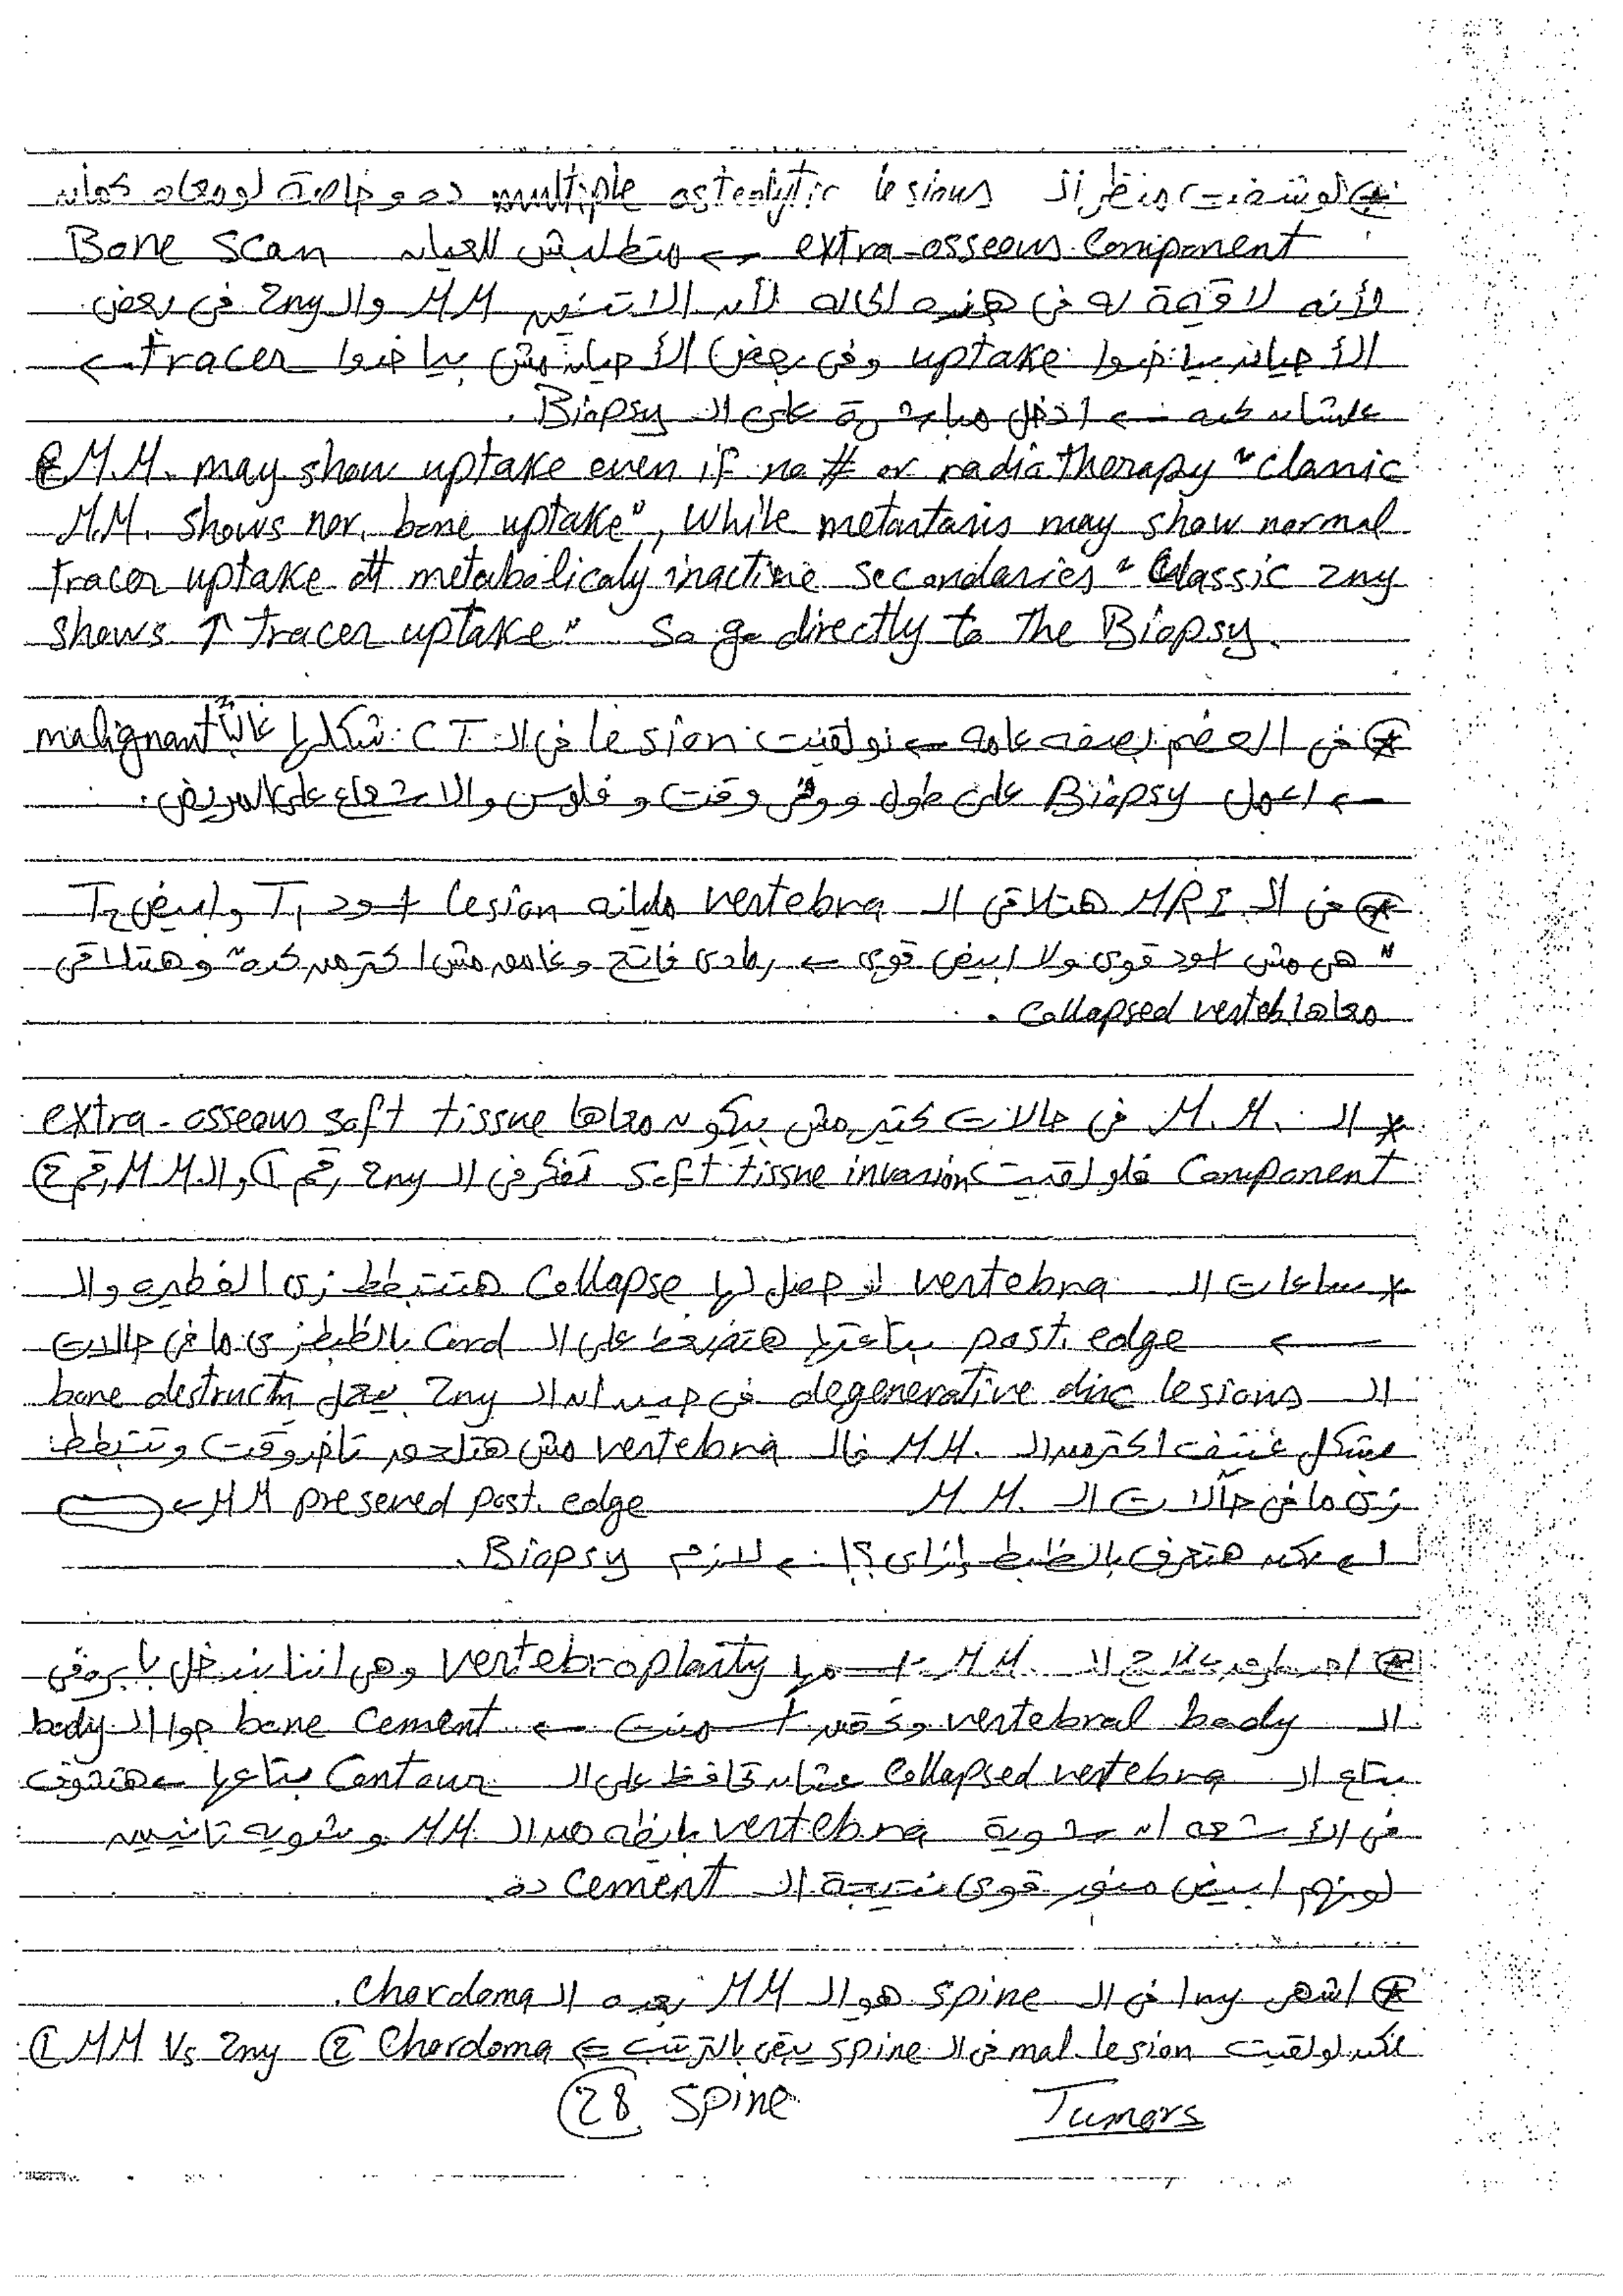 ⊛ لو شفت منظر الـ multiple osteolytic lesions ده وخاصة لو معاه كمان
extra-osseous component ← متطلبش للعيان Bone Scan
لأنه لا قيمة له في هذه الحالة لأن الاتنين MM والـ 2ny في بعض
الأحيان بياخدوا uptake وفي بعض الأحيان مش بياخدوا tracer ←
علشان كده ← ادخل مباشرة على الـ Biopsy.
M.M. may show uptake even if no # or radiotherapy "classic
M.M. shows nor. bone uptake", while metastasis may show normal
tracer uptake dt metabolicaly inactive secondaries "Classic 2ny
shows ↑ tracer uptake" So go directly to the Biopsy.
⊛ في العضم بصفه عامه ← لو لقيت lesion في الـ CT شكلها غالباً malignant
← اعمل Biopsy على طول ووفر وقت و فلوس والاشعاع على المريض.
⊛ في الـ MRI هتلاقي الـ vertebra مليانه lesion اسود T1 وابيض T2
"هي مش اسود قوي ولا ابيض قوي ← رمادي فاتح وغامق مش اكتر من كده" وهتلاقي
معاها collapsed vertebra.
* الـ M.M. في حالات كتير مش بيكون معاها extra-osseous soft tissue
Component فلو لقيت soft tissue invasion تفكر في الـ 2ny رقم ① والـ MM رقم ②
* ساعات الـ vertebra لو حصل لها Collapse هتتبطط زي الفطيره والـ
← post. edge بتاعتها هتضغط على الـ Cord بالظبط زي ما في حالات
الـ degenerative disc lesions في حين ان الـ 2ny بيعمل bone destructn
بشكل عنيف اكتر من الـ MM. فالـ vertebra مش هتلحق تاخد وقت وتتبطط
زي ما في حالات الـ MM. MM preserved post. edge ←
لكن هتعرف بالظبط إزاي؟! ← لازم Biopsy.
⊛ علاج الـ MM. اسمها vertebroplasty وهي اننا بندخل
الـ vertebral body ونحقن اسمنت ← bone cement جوا الـ body
بتاع الـ Collapsed vertebra عشان نحافظ على الـ Contour بتاعها ← هتشوف
في الأشعه ان شوية vertebra بايظه من الـ MM وشويه تانيين
لونهم ابيض منور قوي نتيجة الـ cement ده.
⊛ اشهر 1ry في الـ spine هو الـ MM بعده الـ Chordoma.
لكن لو لقيت mal. lesion في الـ spine يبقى بالترتيب ← ① MM Vs 2ny ② Chordoma
Tumors Spine 28